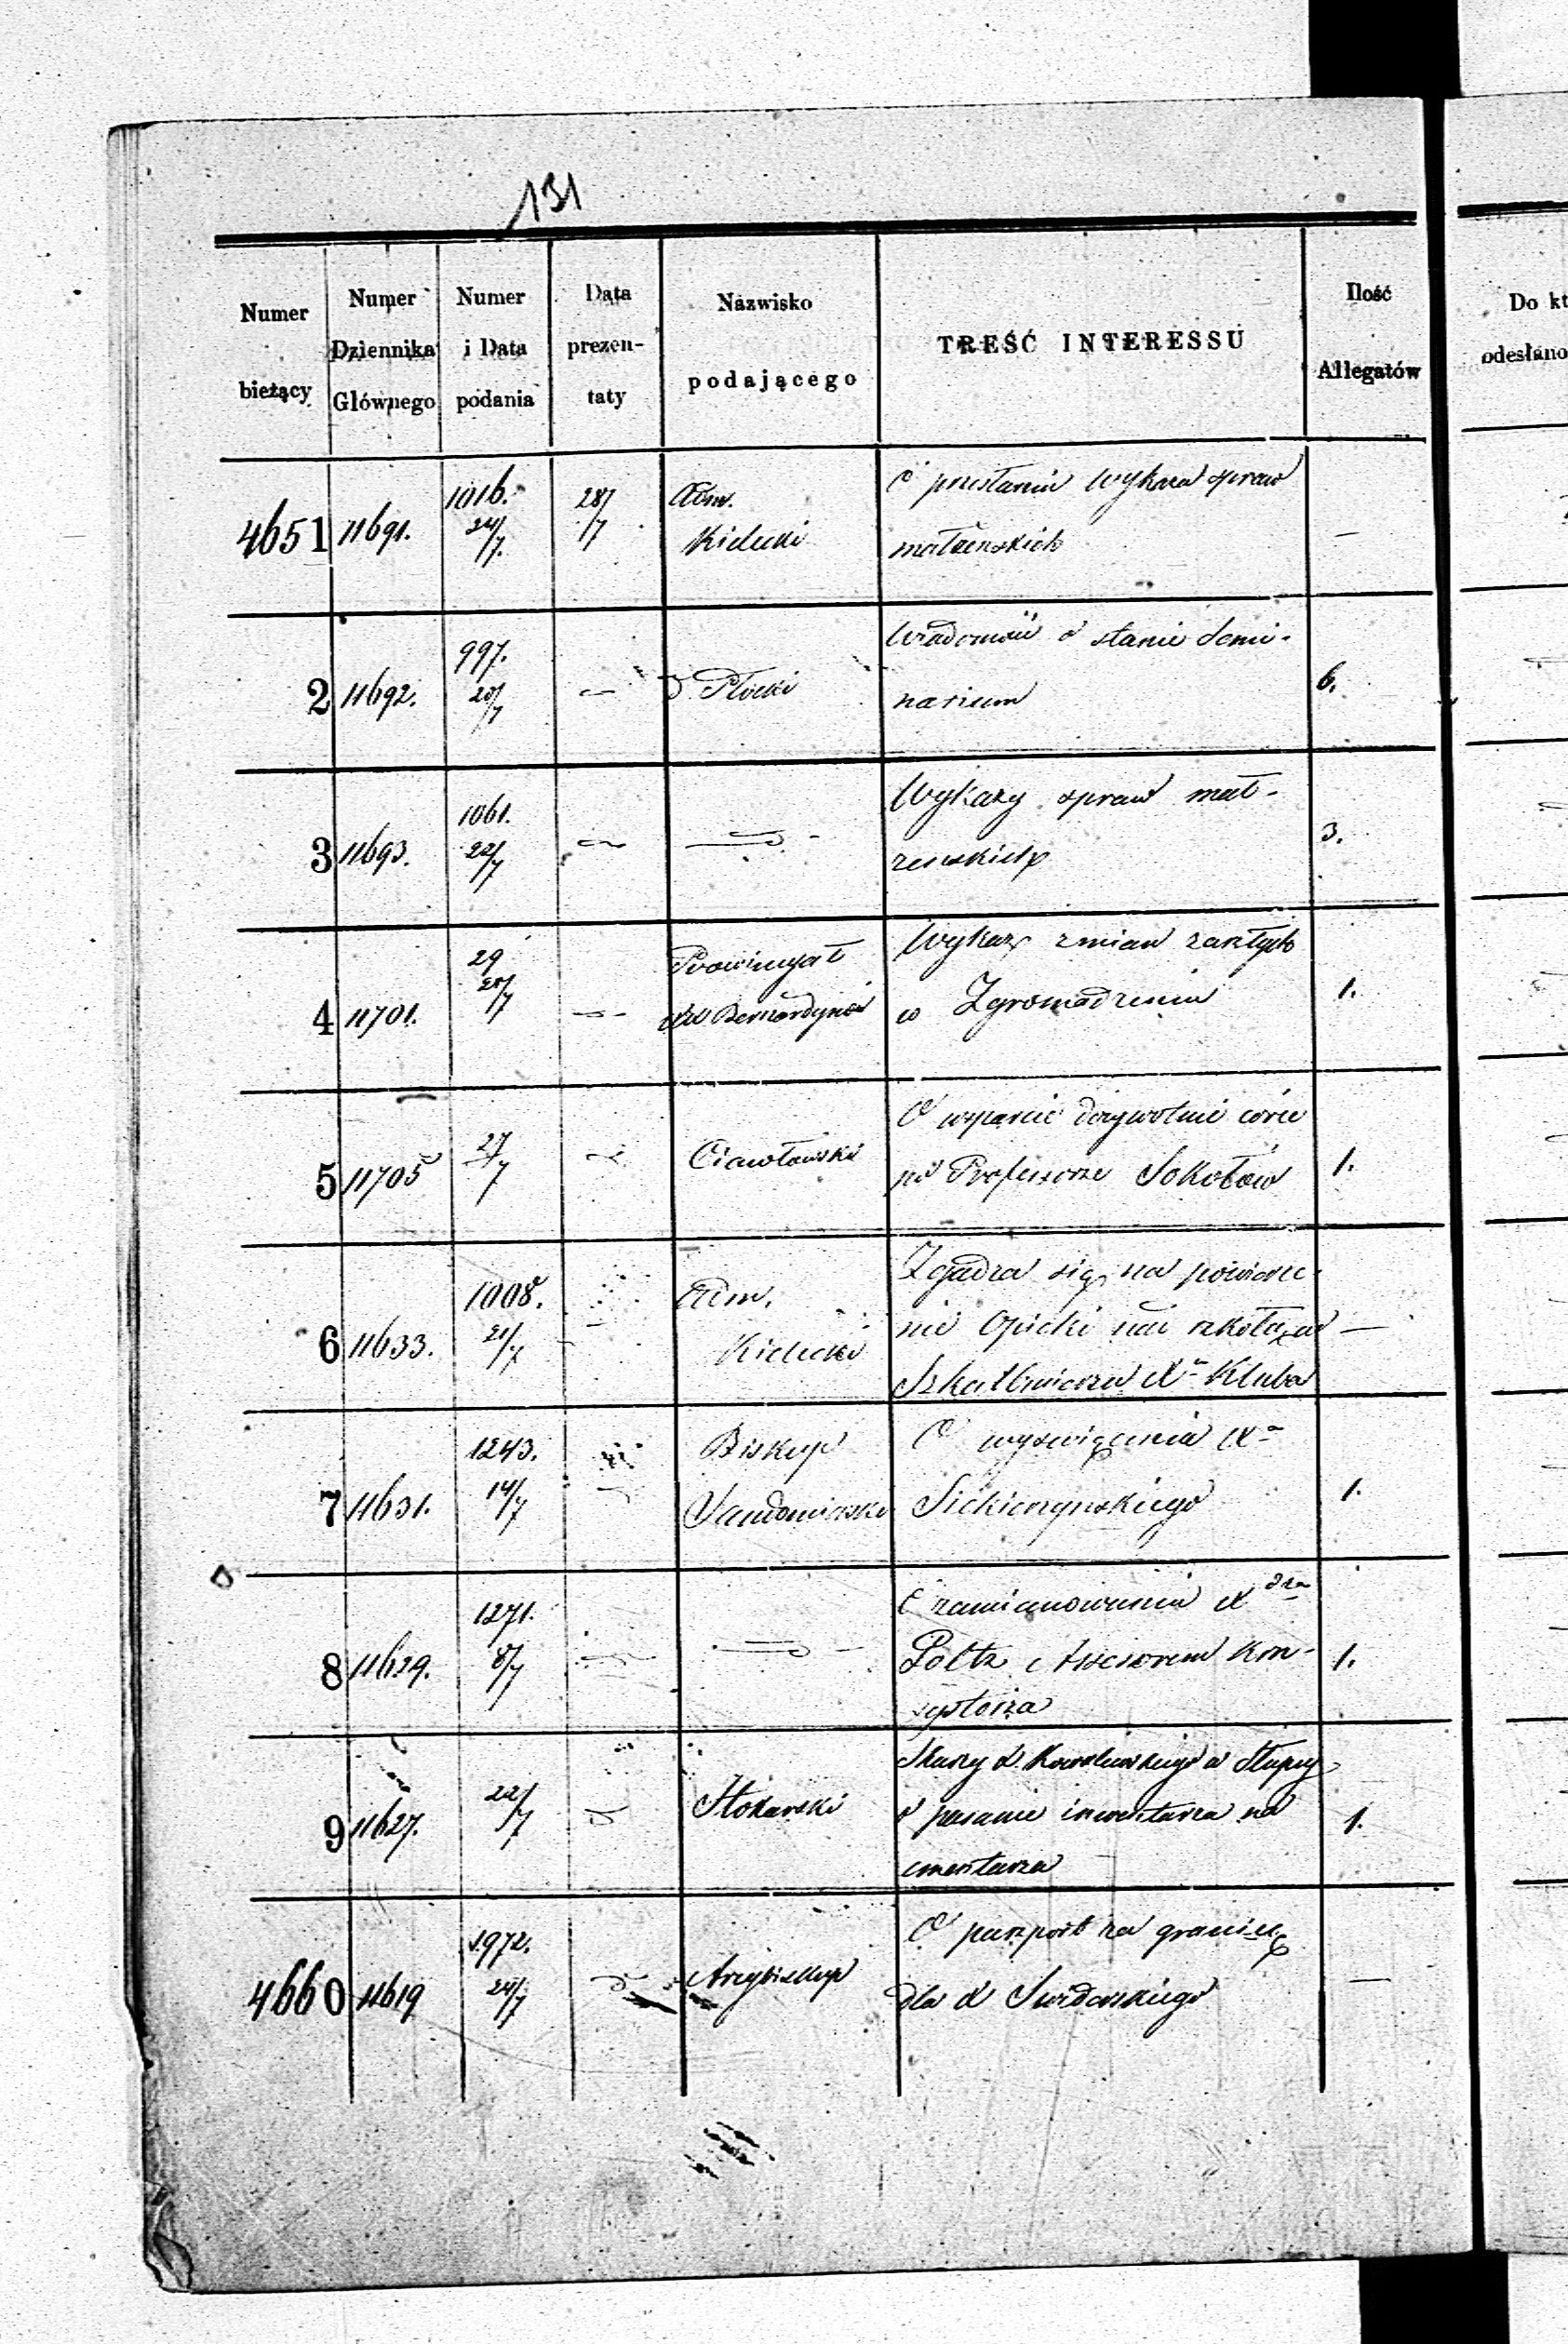 131
Numer bieżący | Numer Dziennika Głównego | Numer i Data podania | Data prezen-taty | Nazwisko podającego | TREŚĆ INTERESSU | Ilość Allegatów | Do kt odesłano
4651 | 11691. | 1016. 24/7. | 28/7 | Adm. Kielecki | O przesłaniu Wykaza spraw
małżeńskich | —
2 | 11692. | 997. 20/7 | — | D Płocki | Wiadomość o stanie Semi-
narium | 6.
3 | 11693. | 1061. 22/7 | — | — | Wykazy spraw mał-
żeńskich | 3.
4 | 11701. | 29 | — | Prowincyał XX Bernardynów | Wykaz zmian zaszłych
w Zgromadzeniu | 1.
5 | 11705 | 27/7 | — | O wsparcie dożywotnie córce
po Profesorze Sokołow | 1.
6 | 11633. | 1008. 21/7 | — | Adm. Kielecki | Zgadza się na powierze-
nie Opieki nad szkołą w
Szkalbmierzu Xu Kluba | —
7 | 11631. | 1243. 14/7 | Biskup Sandomierski | O wyświęcenia Xa
Siekierzynskiego | 1.
8 | 11629. | 1271. 8/7 | — | O zamianowania X
Poltz Assessorem Kon-
systorza | 1.
9 | 11627. | 22/7 | Stokarski | Skarży X Kowalewskiego w Słupcy
o pasanie inwentarza na
cmentarza | 1.
4660 | 11619 | 1972. 24/7 | Arcybiskup | O paszport za granicę
dla X Swiderskiego | —